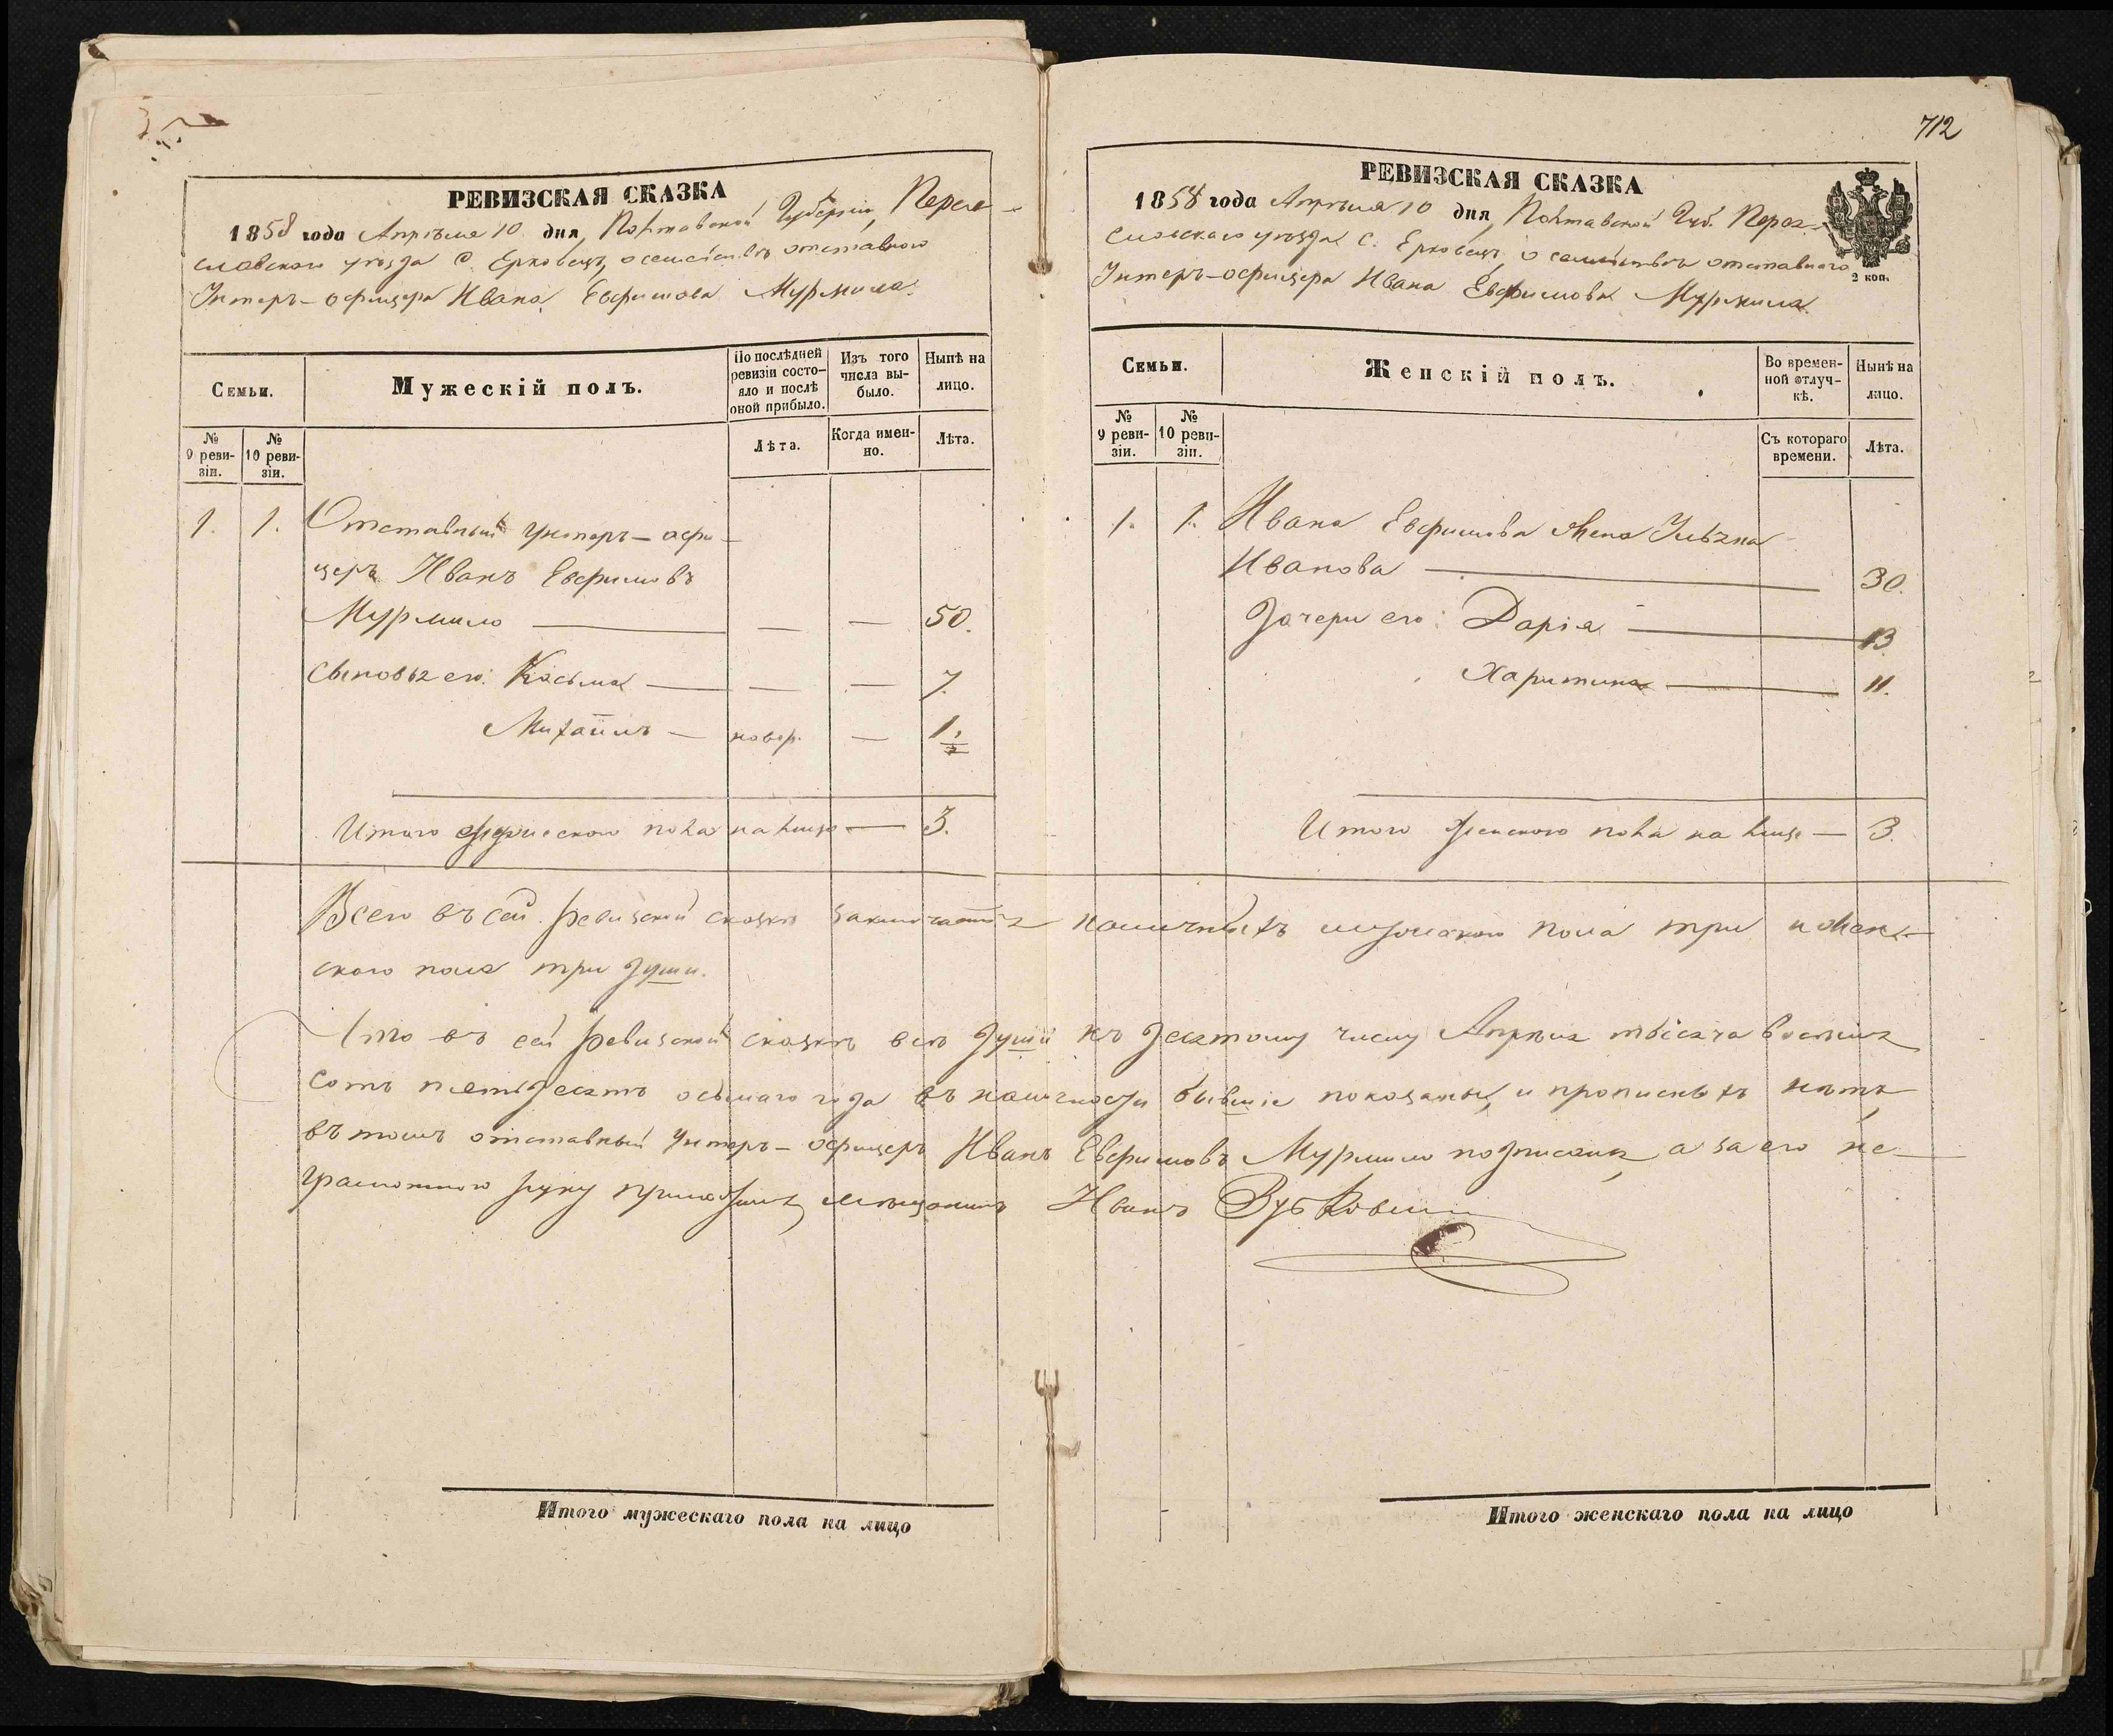 712
РЕВИЗСКАЯ СКАЗКА
1858 года Апрѣля 10 дня, Полтавской Губерніи, Перея-
славского уѣзда С. Ерковецъ, о семействѣ отставного
Унтеръ-офицера Ивана Евфимова Мурмила.
Семьи.
Мужескій полъ.
По послѣдней ревизіи состо-яло и послѣ оной прибыло.
Изъ того числа вы-было.
Нынѣ на лицо.
№ 9 реви-зіи.
№ 10 реви-зіи.
Лѣта.
Когда имен-но.
Лѣта.
1. 1. Отставный унтеръ-офи-
церъ Иванъ Евфимовъ
Мурмило — — — 50.
Сыновья его: Косьма — — — 7.
Михаилъ — новор. — 1.
Итого мужеского пола на лицо — 3.
РЕВИЗСКАЯ СКАЗКА
1858 года Апрѣля 10 дня, Полтавской Губ. Перея-
славскаго уѣзда С. Ерковецъ, о семействѣ отставнаго
Унтеръ-офицера Ивана Евфимова Мурмила.
2 коп.
Семьи.
Женскій полъ.
Во времен-ной отлуч-кѣ.
Нынѣ на лицо.
№ 9 реви-зіи.
№ 10 реви-зіи.
Съ котораго времени.
Лѣта.
1. 1. Ивана Евфимова жена
Иванова — 30.
Дочери его: Дарія — 13.
Харитина — 11.
Итого женского пола на лицо — 3.
Всего въ сей ревизской сказкѣ заключается наличныхъ мужеского пола три и жен-
ского пола три души.
Что въ сей ревизской сказкѣ всѣ души къ десятому числу Апрѣля тысяча восемь
сотъ пятьдесятъ осьмаго года въ наличности бывшіе показаны, и прописныхъ нѣтъ
въ томъ отставный Унтеръ-офицеръ Иванъ Евфимовъ Мурмило подписался, а за его не-
грамотного руку приложилъ мѣщанинъ Иванъ
Итого мужескаго пола на лицо
Итого женскаго пола на лицо